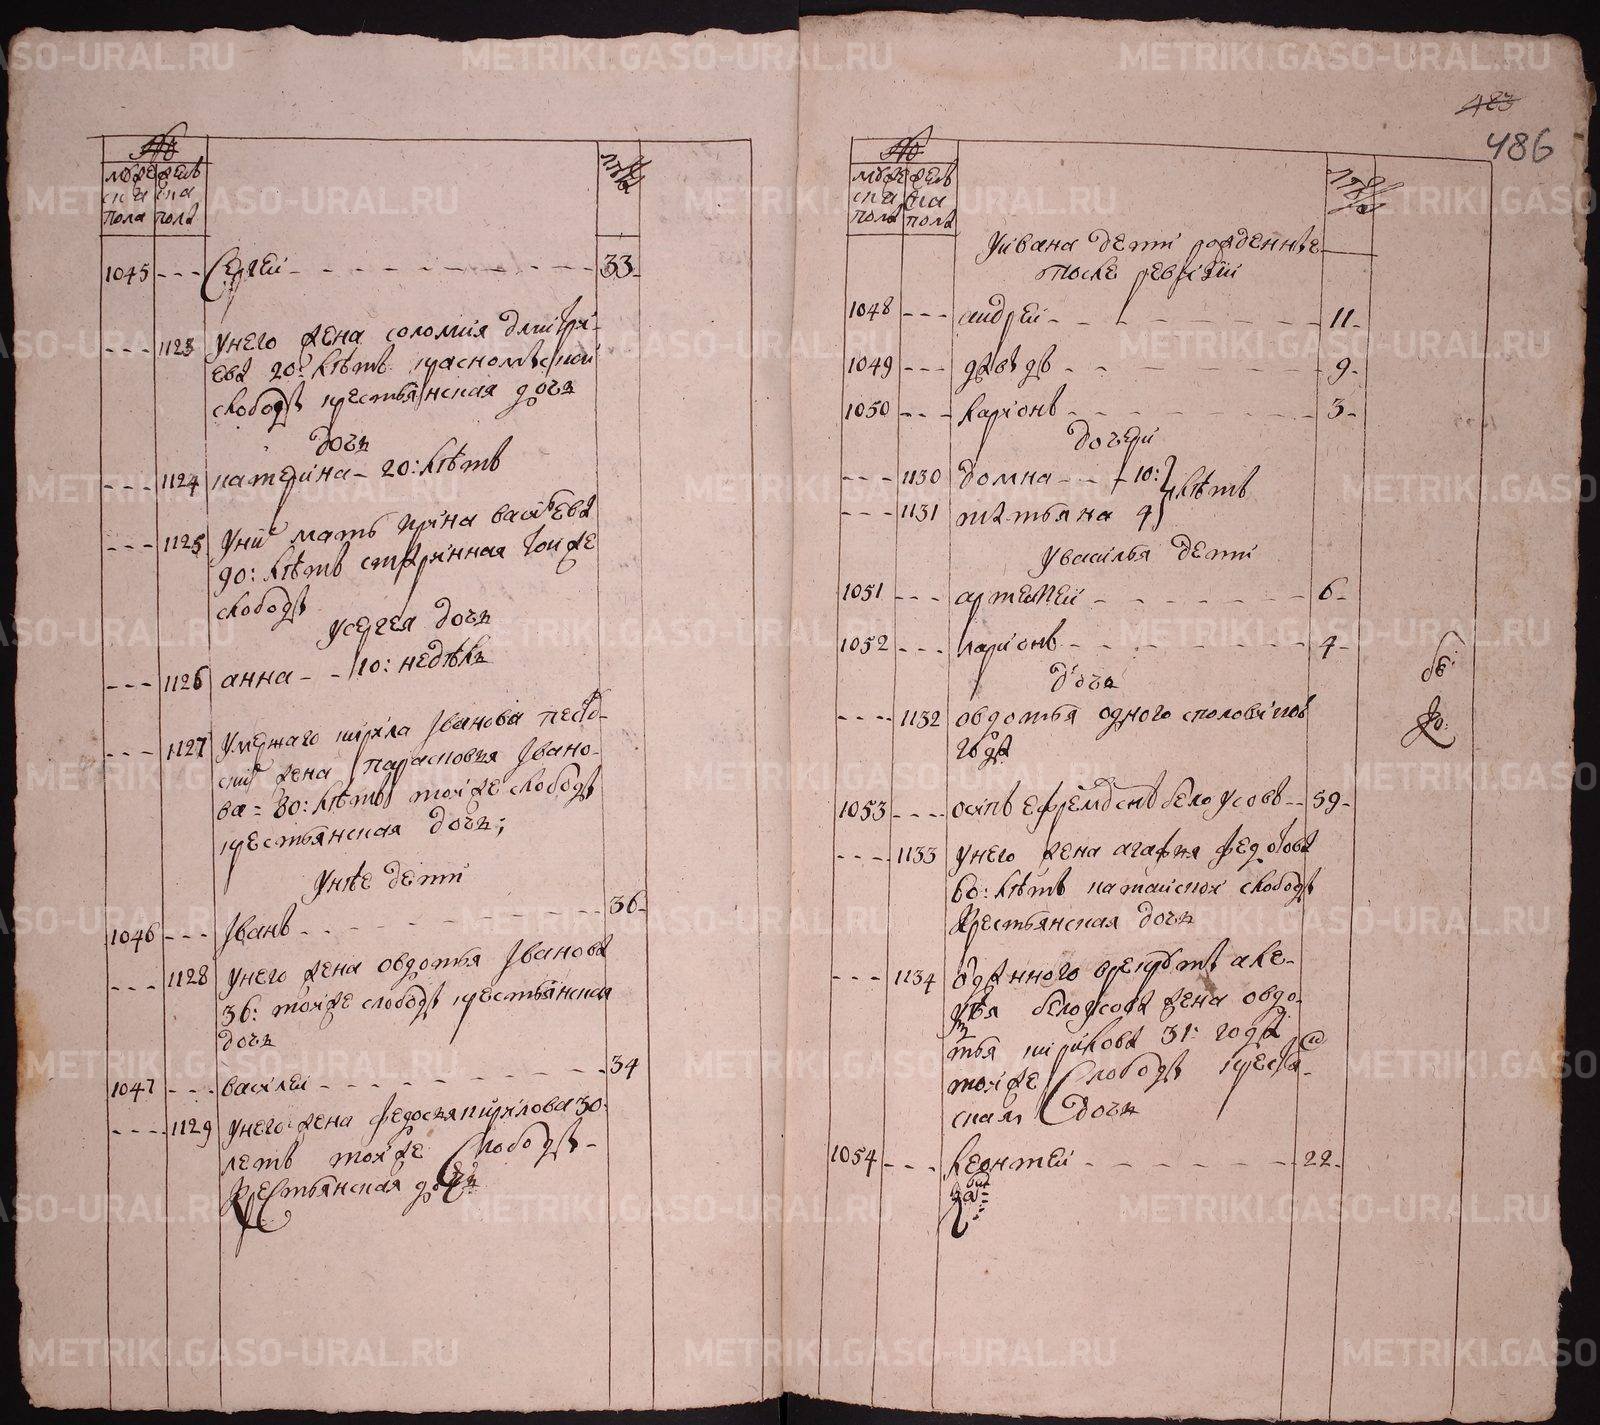 №
мужеска пола
женска пола
лета
1045 - - - Сергеи - - - - - - - - - 33
- - - 1123 У него жена соломия дмитри-
ева 20: летъ красномыской
слободы крестьянская дочь
дочь
- - - 1124 катерина - 20: летъ
- - - 1125 У них мать ирина васильева
90: летъ старинная тои же
слободы
У сергея дочь
- - - 1126 анна - - 10: недель
- - - 1127 Умершаго кирила Иванова
жена парасковья Ивано-
ва = 80: летъ тои же слободы
крестьянская дочь;
У нее дети
1046 - - - Иванъ - - - - - - 36
- - - 1128 У него жена овдотья Иванова
36: тои же слободы крестьянская
дочь
1047 - - - василеи - - - - - - - 34
- - - 1129 У него жена федосья кирилова 30
летъ тои же Слободы
Крестьянская дочь
483
486
№
мужеска пола
женска пола
лета
У ивана дети рожденные
после ревизии
1048 - - - андреи - - - - - - 11
1049 - - - давыдъ - - - - - 9
1050 - - - ларионъ - - - - - 3
дочери
- - - 1130 домна - - - 10:
летъ
- - - 1131 татьяна 4
У василья дети
1051 - - - артемеи - - - - - - 6
1052 - - - ларионъ - - - - - - 4
дочь
- - - 1132 овдотья одного с половиною
года
1053 - - - осипъ ефремовъ сынъ белоусовъ - - 59
- - - 1133 У него жена агафья федотова
60: летъ катаиской слободы
Крестьянская дочь
- - - 1134 отданного в рекруты але-
белоусова жена овдо-
тья кирилова 31: года
тои же Слободы крестья-
нская дочь
1054 - - - леонтеи - - - - - - 22